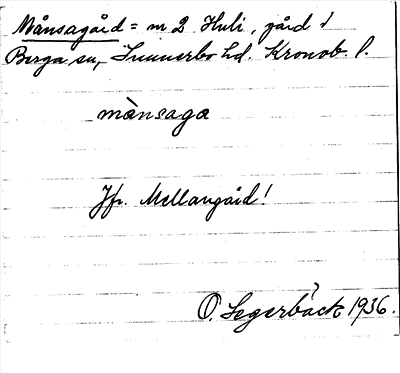 Månsagård = nr 2 Huli, gård i
Berga sn, Sunnerbo hd. Kronob. l.
månsaga
Jfr. Mellangård!
O. Segerbäck 1936.